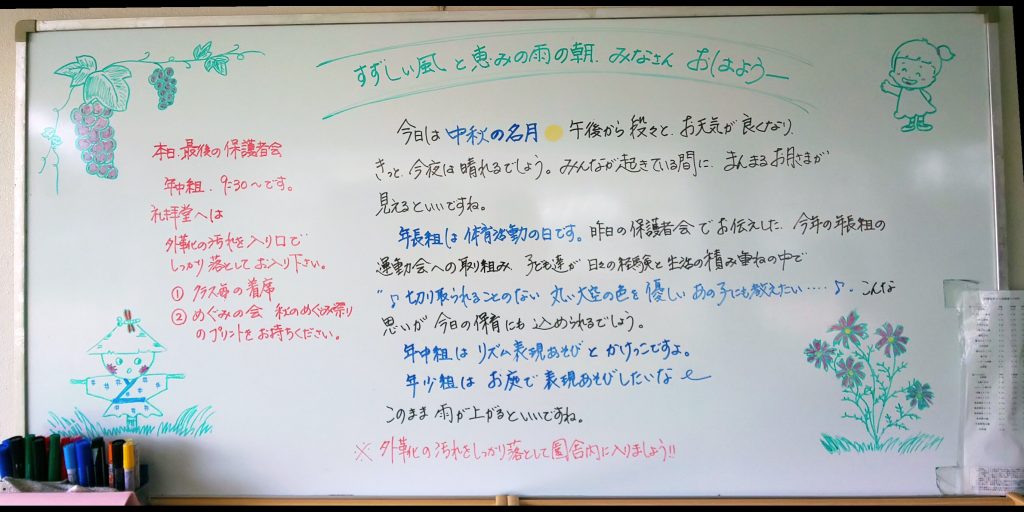 すずしい風と恵みの雨の朝、みなさん おはようー
本日、最後の保護者会
年中組、9:30〜です。
礼拝堂へは
外靴の汚れを入り口で
しっかり落としてお入り下さい。
① クラス毎の着席
② めぐみの会 秋のめぐみ祭り
のプリントをお持ちください。
今日は 中秋の名月 午後から段々と、お天気が良くなり、
きっと、今夜は晴れるでしょう。みんなが起きている間に、まんまるお月さまが
見えるといいですね。
年長組は体育活動の日です。昨日の保護者会でお伝えした、今年の年長組の
運動会への取り組み、子ども達が日々の経験と生活の積み重ねの中で
"♪切り取られることのない 丸い大空の色を 優しいあの子にも教えたい……♪、こんな
思いが今日の保育にも込められるでしょう。
年中組はリズム表現あそびとかけっこですよ。
年少組は お庭で表現あそびしたいな〜
このまま雨が上がるといいですね。
※ 外靴の汚れをしっかり落として園舎内に入りましょう!!